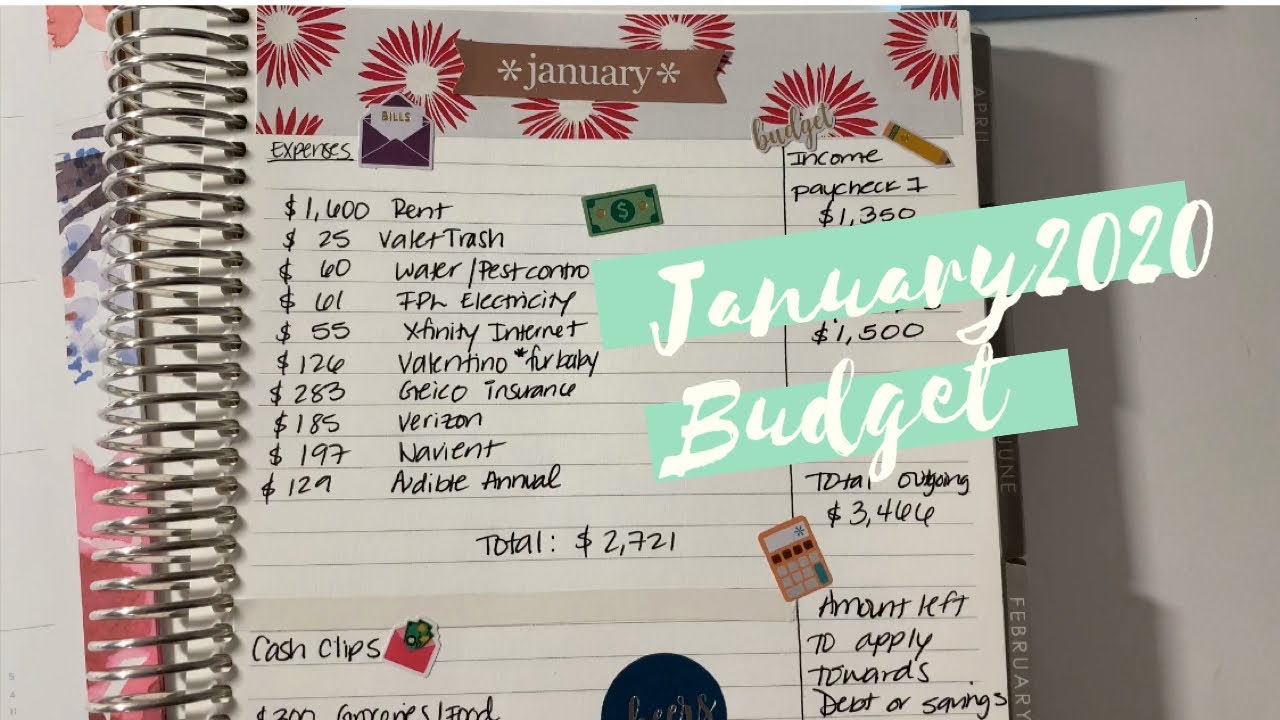 *january*
BILLS
budget
Expenses
$1,600 Rent
$ 25 Valet Trash
$ 60 Water/Pest contro
$ 61 FPL Electricity
$ 55 Xfinity Internet
$126 Valentino *furbaby
$283 Geico insurance
$185 Verizon
$197 Navient
$129 Audible Annual
Total: $2,721
Cash Clips
$300 Groceries/Food
Income
paycheck 1
$1,350
$1,500
Total outgoing
$3,466
Amount left
To apply
towards
Debt or savings
cheers
January 2020
Budget
APRIL
JUNE
FEBRUARY